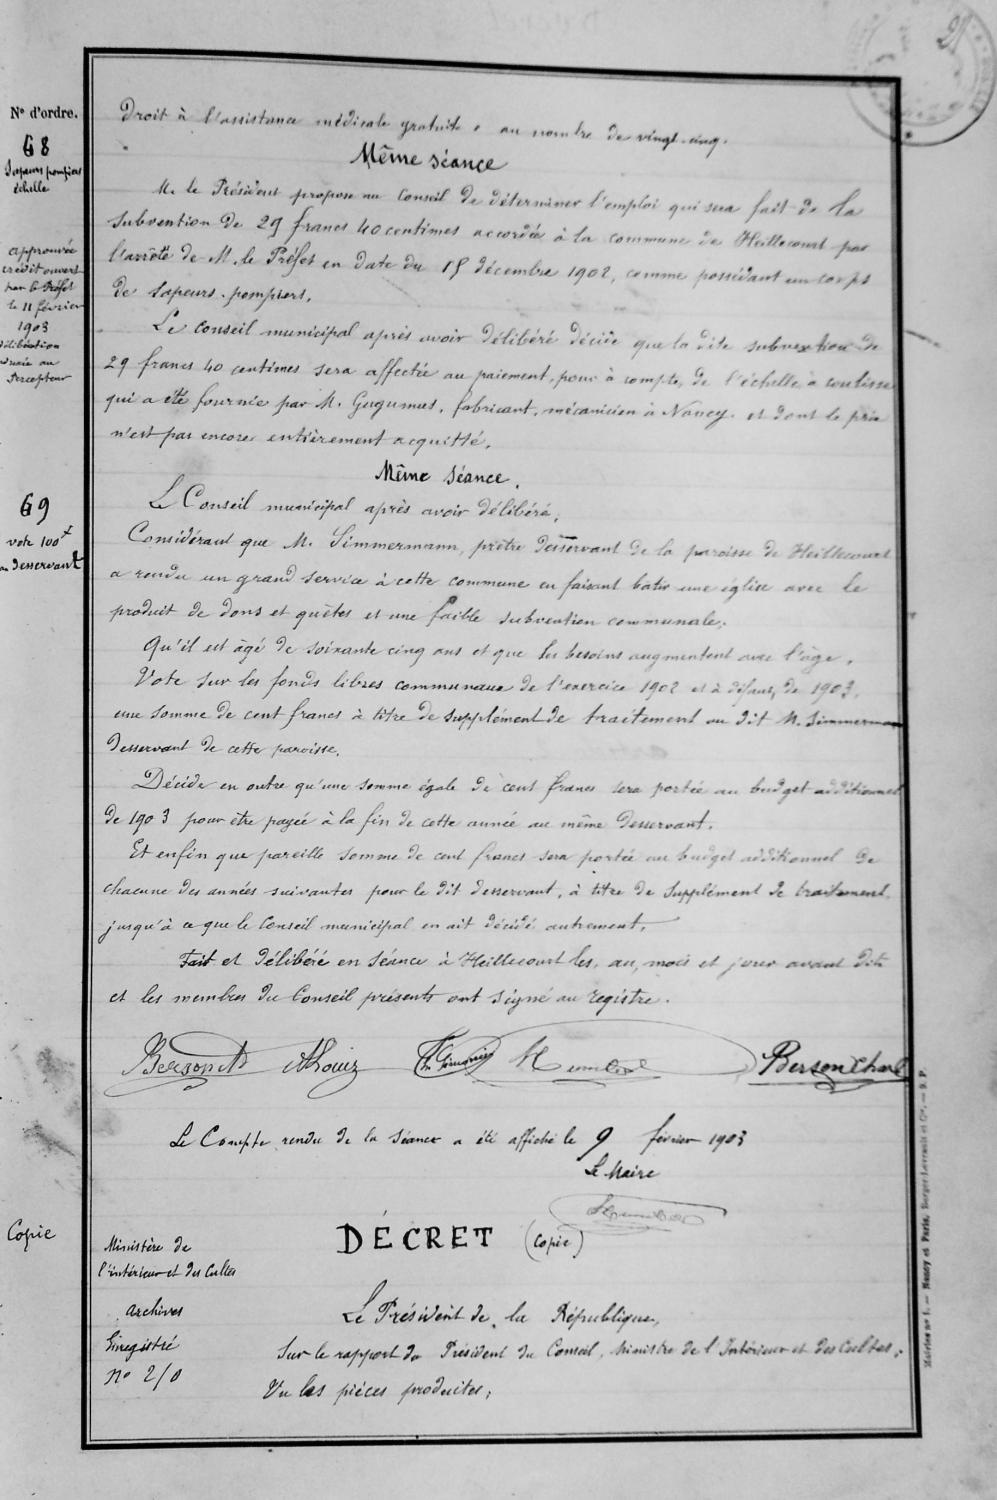 21
N° d'ordre.
Droit à l'assistance médicale gratuite, au nombre de vingt-cinq.
68
Sapeurs pompiers
échelle
Même séance
M. le Président propose au Conseil de déterminer l'emploi qui sera fait de la
subvention de 29 francs 40 centimes accordée à la commune de Heillecourt par
l'arrêté de M. le Préfet en date du 15 décembre 1902, comme possédant un corps
de sapeurs-pompiers.
approuvée
crédit ouvert
par le Préfet
le 11 février
1903
délibération
au
Percepteur
Le Conseil municipal après avoir délibéré décide que la dite subvention de
29 francs 40 centimes sera affectée au paiement, pour à compte, de l'échelle à coulisse
qui a été fournie par M. Gugumus, fabricant, mécanicien à Nancy. et dont le prix
n'est pas encore entièrement acquitté.
Même séance.
69
vote 100f
au desservant
Le Conseil municipal après avoir délibéré,
Considérant que M. Simmermann, prêtre desservant de la paroisse de Heillecourt
a rendu un grand service à cette commune en faisant bâtir une église avec le
produit de dons et quêtes et une faible subvention communale;
Qu'il est âgé de soixante cinq ans et que les besoins augmentent avec l'âge,
Vote sur les fonds libres communaux de l'exercice 1902 et à défaut, de 1903,
une somme de cent francs à titre de supplément de traitement au dit M. Simmermann
desservant de cette paroisse.
Décide en outre qu'une somme égale de cent francs sera portée au budget additionnel
de 1903 pour être payée à la fin de cette année au même desservant.
Et enfin que pareille somme de cent francs sera portée au budget additionnel de
chacune des années suivantes pour le dit desservant, à titre de supplément de traitement,
jusqu'à ce que le Conseil municipal en ait décidé autrement.
Fait et délibéré en séance à Heillecourt les, an, mois et jour avant dits
et les membres du Conseil présents ont signé au registre.
Berson Charl
Le Compte rendu de la séance a été affiché le 9 février 1903
Le Maire
Copie
DÉCRET (Copie)
Ministère de
l'intérieur et des Cultes
Archives
Enregistré
N° 210
Le Président de la République,
Sur le rapport du Président du Conseil, Ministre de l'Intérieur et des Cultes;
Vu les pièces produites;
Mairies n° 1. — Nancy et Paris, Berger-Levrault et Cie. — 9. P.